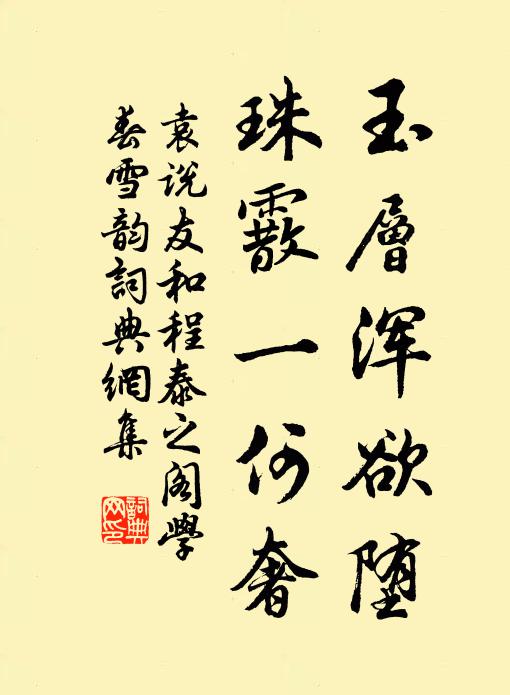 玉層浑欲堕
珠霰一何奢
袁说友和程泰之阁學
春雪韵詞典網集
詞典
网印